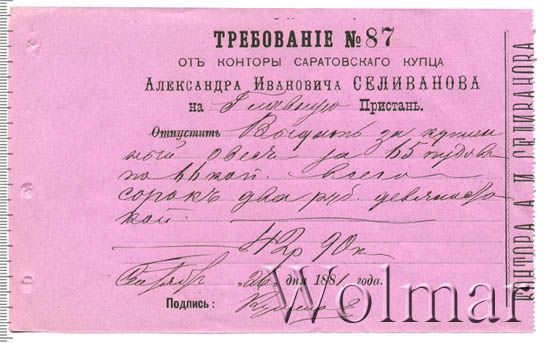 ТРЕБОВАНІЕ № 87
ОТЪ КОНТОРЫ САРАТОВСКАГО КУПЦА
АЛЕКСАНДРА ИВАНОВИЧА СЕЛИВАНОВА
на Главную Пристань.
Отпустить Выдать за куплен
ный овесъ за 65 пудовъ
по 66 коп. всего
сорокъ два руб. девяносто
коп.
42р 90к
"26" дня 1881 года.
Подпись:
КОНТОРА А. И. СЕЛИВАНОВА
Wolmar